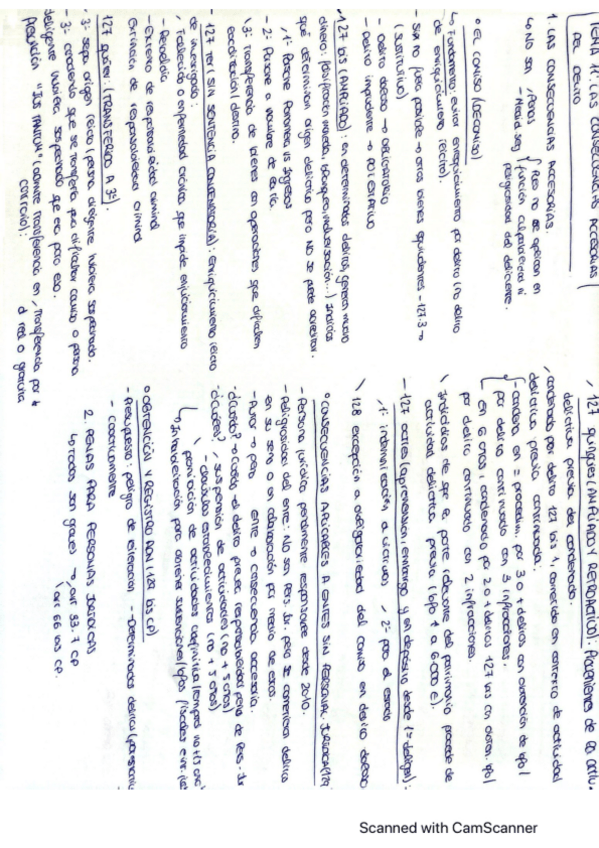 TEMA 1º: LAS CONSECUENCIAS ACCESORIAS
DEL DELITO
1. LAS CONSECUENCIAS ACCESORIAS.
↳ No son - Penas
- Medid seg
Pues no se aplican en
función culpabilidad ni
peligrosidad del delincuente.
• EL COMISO (DECOMISO)
↳ Fundamento: evitar enriquecimiento por delito (no delito
de enriquecimiento ilícito).
- Si no fuera posible → otros bienes equivalentes - 127.3 →
(SUSTITUTIVO)
- Delito doloso → OBLIGATORIO
- Delito imprudente → POTESTATIVO
127 bis (AMPLIADO): en determinados delitos, generen mucho
dinero: (falsificación moneda, blanqueo,
que determinan origen delictivo pero NO se puede acreditar.
1º: Patrimonio vs Ingresos
2º: Poner a nombre de
3º: Transferencia de bienes en operaciones que dificulten
localización destino.
- 127 ter (SIN SENTENCIA CONDENATORIA): enriquecimiento ilícito
de investigado:
Fallecido o enfermedad crónica que impide enjuiciamiento
- Rebeldía
- Exento de responsabilidad criminal
- Extinción de responsabilidad criminal
127 quater: (TRANSFERIDO A 3º).
- 3º sepa origen ilícito (persona diligente hubiera sospechado.
- 3º conociendo que se transfería para dificultar comiso o persona
diligente hubiera sospechado que era para eso.
Presunción "IUS TANTUM" (admite
contrario):
transferencia por ↓
d real o gratuita
127 quinquies (AMPLIADO Y RETROACTIVO): Procedentes de la activ.
delictiva previa del condenado.
condenado por delito 127 bis 1, cometido en contexto de actividad
delictiva previa continuada:
- condena en = procedim. por 3 o + delitos con obtención de bfo/
por delito continuado con 3 infracciones.
en 6 años, condenado por 2 o + delitos 127 bis con obten. bfo/
por delito continuado con 2 infracciones.
Indicios de que la parte relevante del patrimonio procede de
actividad delictiva previa (bfo + a 6.000 €).
- 127 octies (aprehensión, embargo y en depósito desde 1as diligs):
1º: indemnización a víctimas 2º: para el estado
128 excepción a obligatoriedad del comiso en delito doloso
• CONSECUENCIAS APLICABLES A ENTES SIN PERSONAL. JURÍDICA (129)
- Persona jurídica penalmente responsable desde 2010.
- Peligrosidad del ente: No son Pers. Jur. pero se cometieron delitos
en su seno o en colaboración por medio de estos.
- Autor → pena ente → consecuencia accesoria.
- ¿Cuándo? → Cuando el delito prevea responsabilidad penal de Pers. Jur
- ¿Cuáles? suspensión de actividades (no + 5 años)
clausura establecimientos (no + 5 años)
prohibición de actividades (definitiva/temporal no +15 años)
↳ Inhabilitación para obtener subvenciones/bfos fiscales
• OBTENCIÓN Y REGISTRO ADN (129 bis CP)
- Presupuesto: peligro de reiteración - Determinados delitos
- Coactivamente
2. PENAS PARA PERSONAS JURÍDICAS
↳ todas son graves → art 33.7 CP
art 66 bis CP.
Scanned with CamScanner